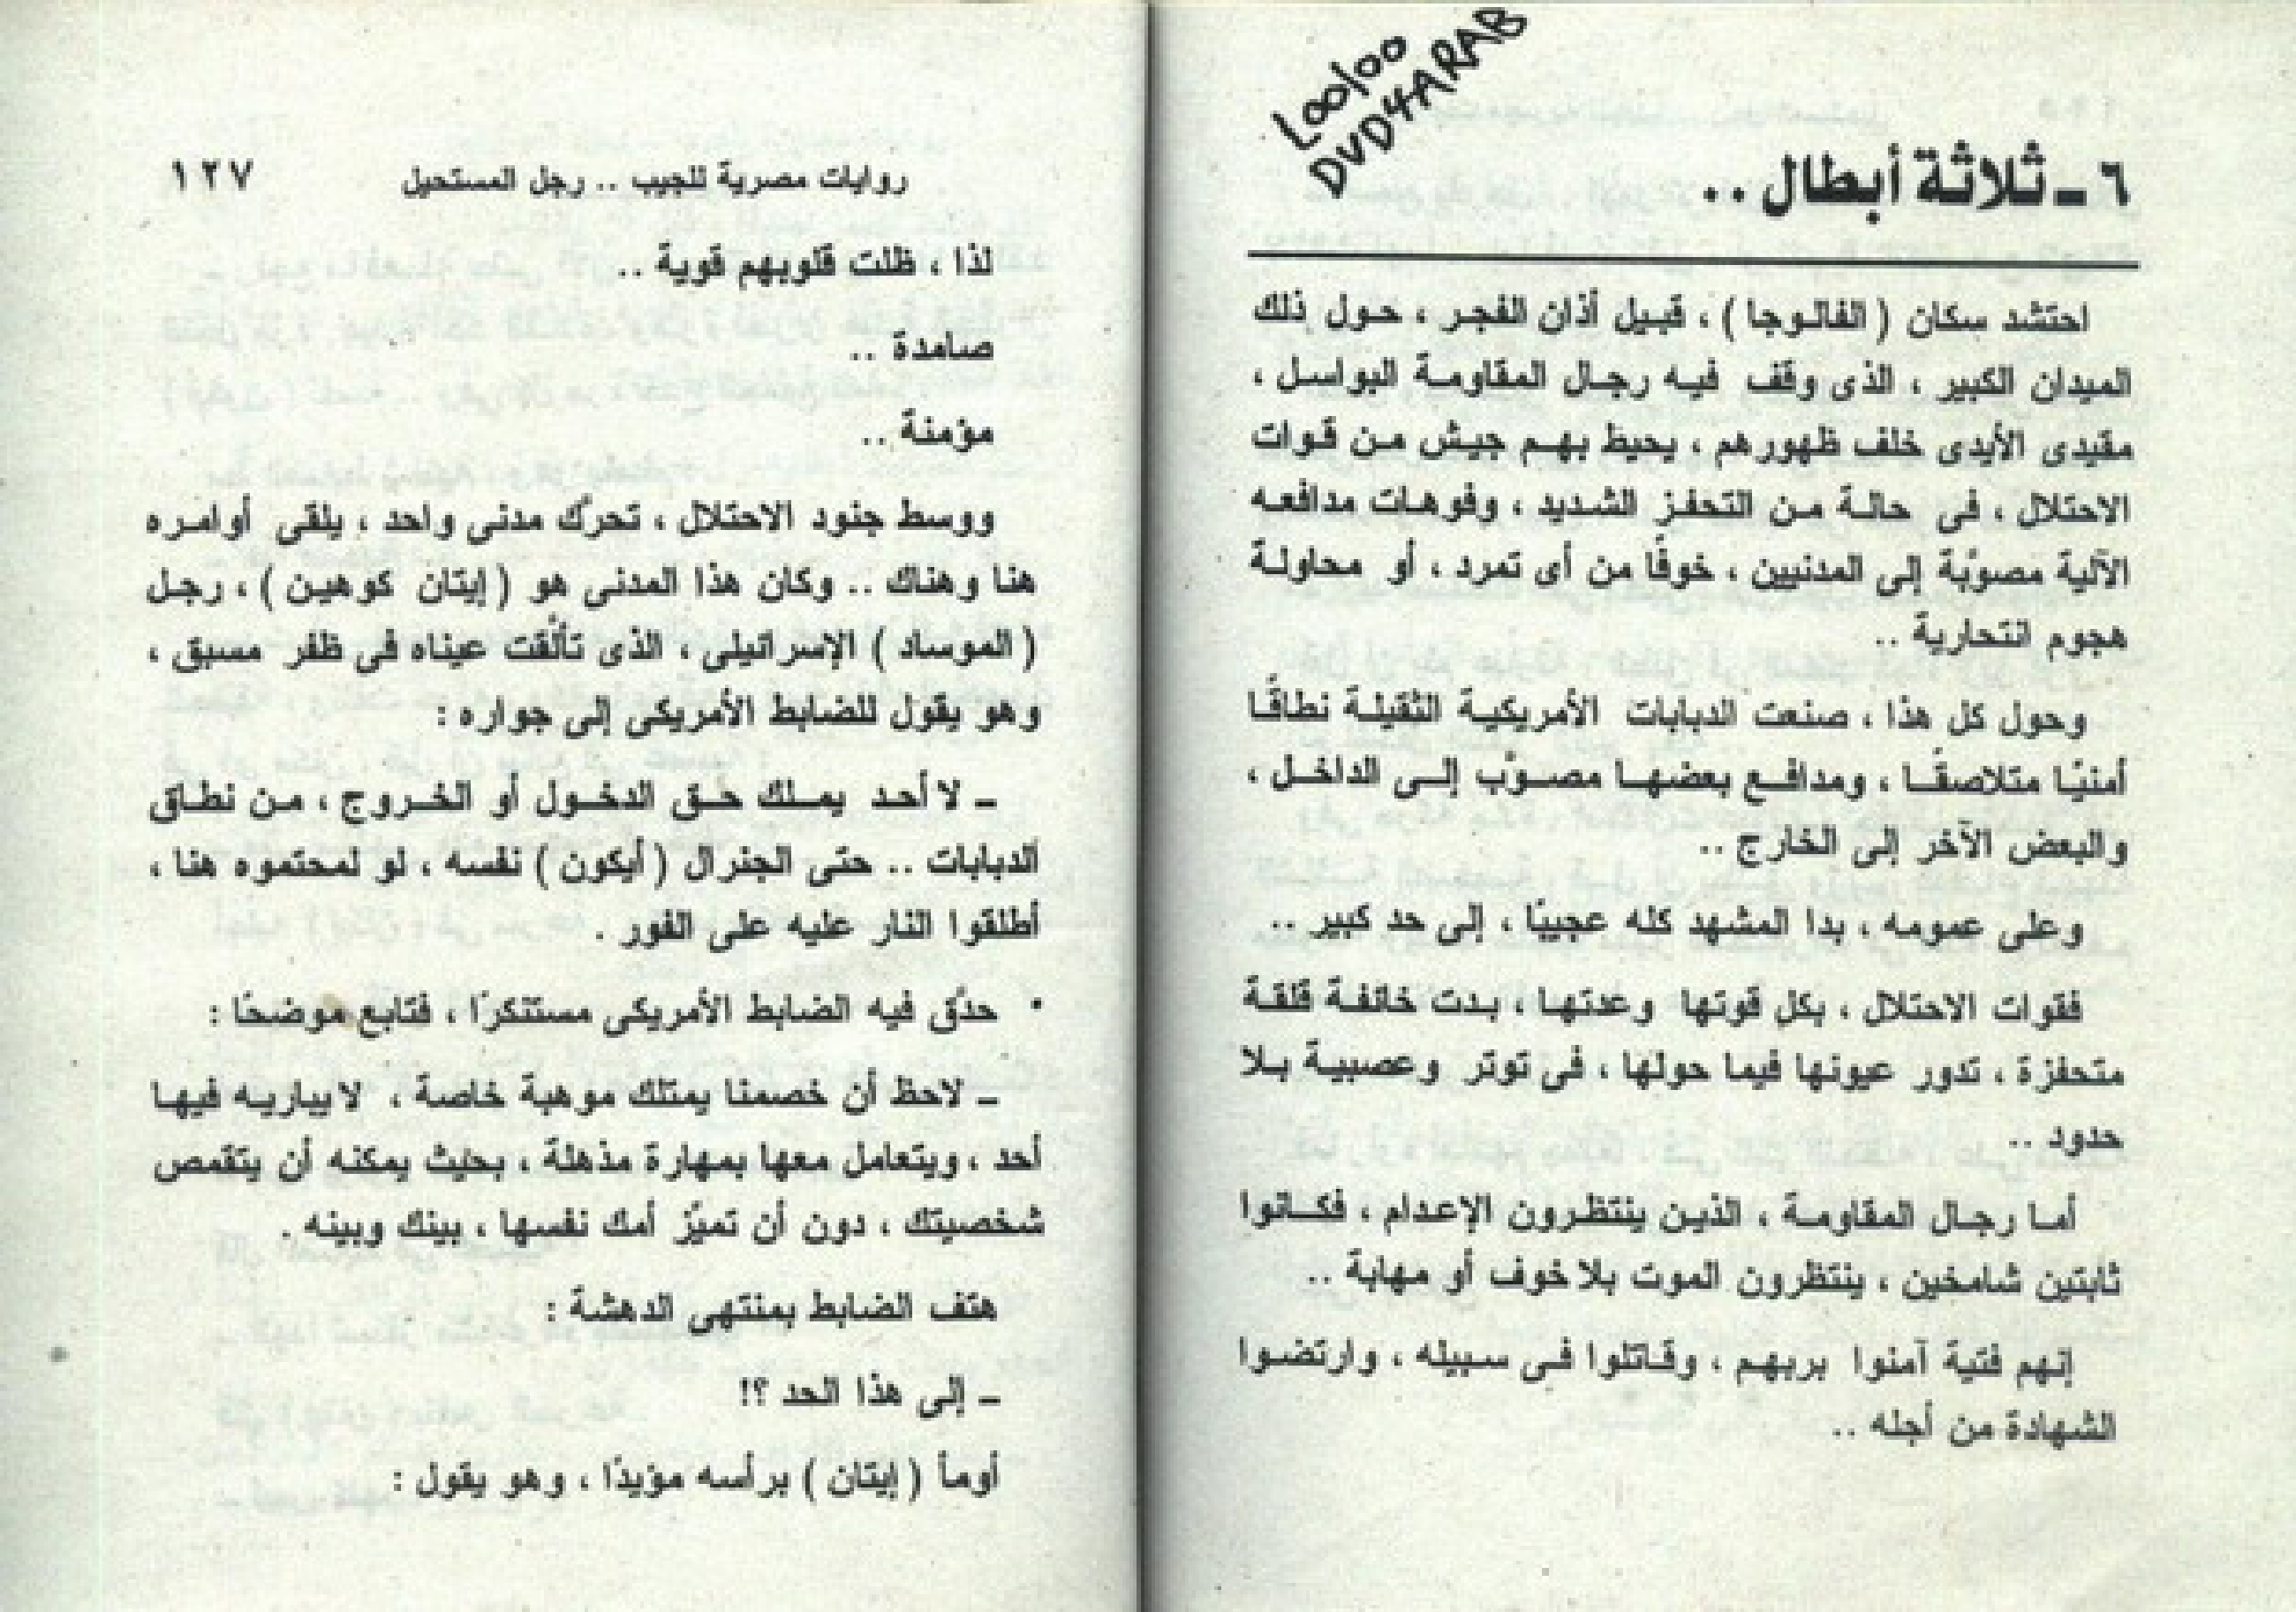 looloo
DVD4ARAB
٦ ـ ثلاثة أبطال ..
احتشد سكان ( الفالوجا ) ، قبيل أذان الفجر ، حول ذلك
الميدان الكبير ، الذى وقف فيه رجال المقاومة البواسل ،
مقيدى الأيدى خلف ظهورهم ، يحيط بهم جيش من قوات
الاحتلال ، فى حالة من التحفز الشديد ، وفوهات مدافعه
الآلية مصوبة إلى المدنيين ، خوفًا من أى تمرد ، أو محاولة
هجوم انتحارية ..
وحول كل هذا ، صنعت الدبابات الأمريكية الثقيلة نطاقًا
أمنيًا متلاصقًا ، ومدافع بعضها مصوَّب إلى الداخل ،
والبعض الآخر إلى الخارج ..
وعلى عمومه ، بدا المشهد كله عجيبًا ، إلى حد كبير ..
فقوات الاحتلال ، بكل قوتها وعدتها ، بدت خائفة قلقة
متحفزة ، تدور عيونها فيما حولها ، فى توتر وعصبية بلا
حدود ..
أما رجال المقاومة ، الذين ينتظرون الإعدام ، فكانوا
ثابتين شامخين ، ينتظرون الموت بلا خوف أو مهابة ..
إنهم فتية آمنوا بربهم ، وقاتلوا فى سبيله ، وارتضوا
الشهادة من أجله ..
روايات مصرية للجيب .. رجل المستحيل ١٢٧
لذا ، ظلت قلوبهم قوية ..
صامدة ..
مؤمنة ..
ووسط جنود الاحتلال ، تحرَّك مدنى واحد ، يلقى أوامره
هنا وهناك .. وكان هذا المدنى هو ( إيتان كوهين ) ، رجل
( الموساد ) الإسرائيلى ، الذى تألَّقت عيناه فى ظفر مسبق ،
وهو يقول للضابط الأمريكى إلى جواره :
ـ لا أحد يملك حق الدخول أو الخروج ، من نطاق
الدبابات .. حتى الجنرال ( أيكون ) نفسه ، لو لمحتموه هنا ،
أطلقوا النار عليه على الفور .
حدَّق فيه الضابط الأمريكى مستنكرًا ، فتابع موضحًا :
ـ لاحظ أن خصمنا يمتلك موهبة خاصة ، لا يباريه فيها
أحد ، ويتعامل معها بمهارة مذهلة ، بحيث يمكنه أن يتقمص
شخصيتك ، دون أن تميِّز أمك نفسها ، بينك وبينه .
هتف الضابط بمنتهى الدهشة :
ـ إلى هذا الحد ؟!
أومأ ( إيتان ) برأسه مؤيدًا ، وهو يقول :